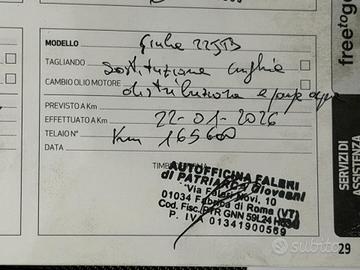 freetogo
MODELLO Giulia 22JTB
TAGLIANDO sostituzione cinghia
CAMBIO OLIO MOTORE distribuzione e pompa acqua
PREVISTO A Km
EFFETTUATO A Km 22-01-2026
TELAIO N° Km 165600
DATA
TIMB
AUTOFFICINA FALERI
di PATRIARCA Giovanni
Via Faleri Novi, 10
01034 Fabrica di Roma (VT)
Cod. Fisc. PTR GNN 59L24
P. IVA 01341900569
SERVIZI DI
ASSISTENZA
29
subito